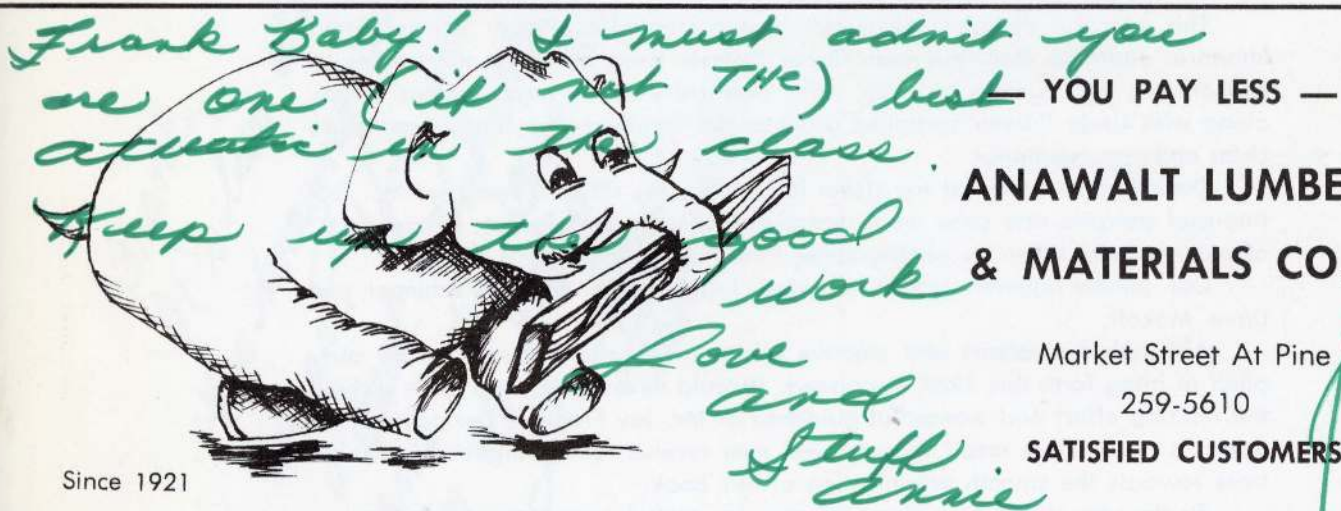 Frank Baby! I must admit you
are one (if not THE) best
in the class.
Keep up the good
work
Love
and
Stuff
Annie
— YOU PAY LESS —
ANAWALT LUMBE
& MATERIALS CO
Market Street At Pine
259-5610
SATISFIED CUSTOMERS
Since 1921